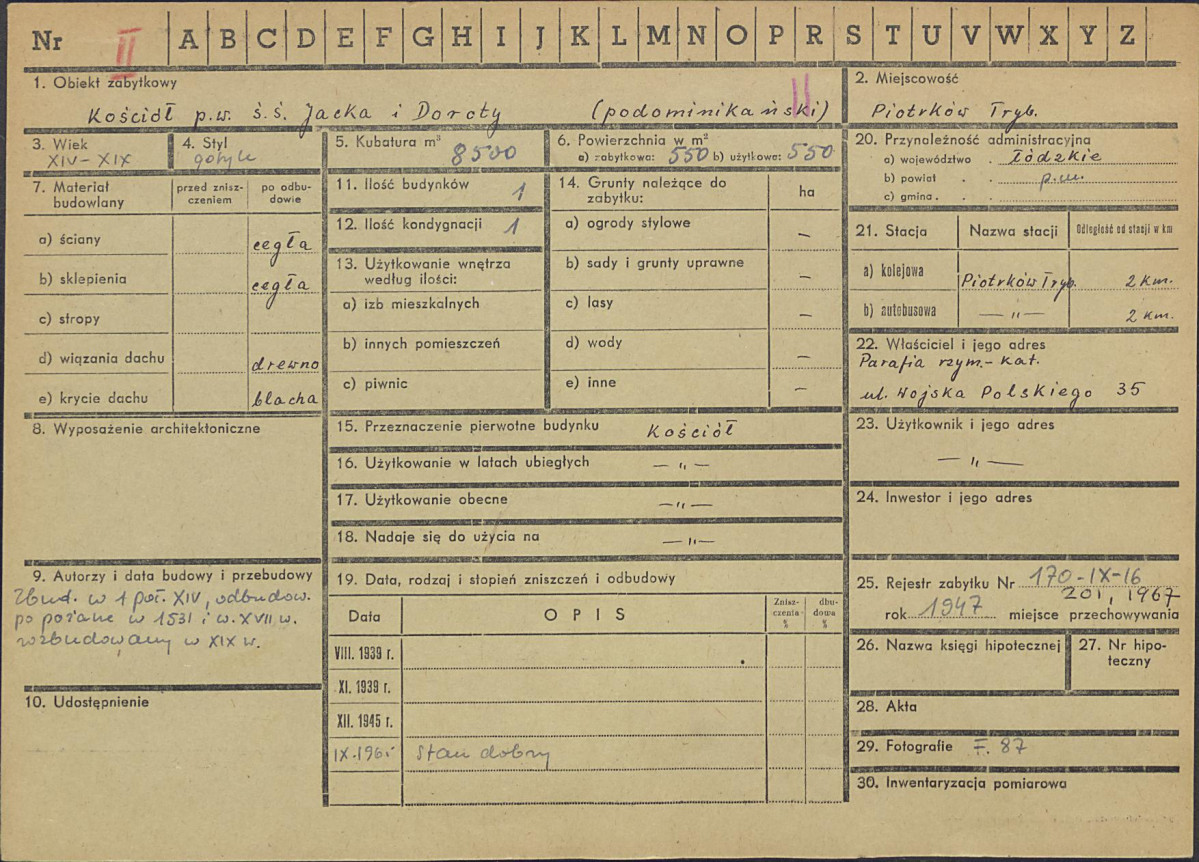 Nr II A B C D E F G H I J K L M N O P R S T U V W X Y Z
1. Obiekt zabytkowy
Kościół p.w. ś.ś. Jacka i Doroty (podominikański) II
2. Miejscowość
Piotrków Tryb.
3. Wiek
XIV - XIX
4. Styl
gotyk
5. Kubatura m³ 8500
6. Powierzchnia w m²
a) zabytkowa: 550 b) użytkowa: 550
20. Przynależność administracyjna
a) województwo . Łódzkie
b) powiat . . p.m.
c) gmina . . .
7. Materiał budowlany
przed znisz-
czeniem
po odbu-
dowie
a) ściany cegła
b) sklepienia cegła
c) stropy
d) wiązania dachu drewno
e) krycie dachu blacha
8. Wyposażenie architektoniczne
9. Autorzy i data budowy i przebudowy
Zbud. w 1 poł. XIV, odbudow.
po pożarze w 1531 i w. XVII w.
rozbudowany w XIX w.
10. Udostępnienie
11. Ilość budynków 1
12. Ilość kondygnacji 1
13. Użytkowanie wnętrza
według ilości:
a) izb mieszkalnych
b) innych pomieszczeń
c) piwnic
14. Grunty należące do
zabytku:
ha
a) ogrody stylowe –
b) sady i grunty uprawne –
c) lasy –
d) wody –
e) inne –
15. Przeznaczenie pierwotne budynku Kościół
16. Użytkowanie w latach ubiegłych — „ —
17. Użytkowanie obecne — „ —
18. Nadaje się do użycia na — „ —
19. Data, rodzaj i stopień zniszczeń i odbudowy
Data OPIS
Znisz-
czenia
%
dbu-
dowa
%
VIII. 1939 r.
XI. 1939 r.
XII. 1945 r.
IX.1965 Stan dobry
21. Stacja Nazwa stacji Odległość od stacji w km
a) kolejowa Piotrków Tryb. 2 km.
b) autobusowa — „ — 2 km.
22. Właściciel i jego adres
Parafia rzym.-kat.
ul. Wojska Polskiego 35
23. Użytkownik i jego adres
— „ —
24. Inwestor i jego adres
25. Rejestr zabytku Nr 170-IX-16
201, 1967
rok 1947 miejsce przechowywania
26. Nazwa księgi hipotecznej
27. Nr hipo-
teczny
28. Akta
29. Fotografie F. 87
30. Inwentaryzacja pomiarowa